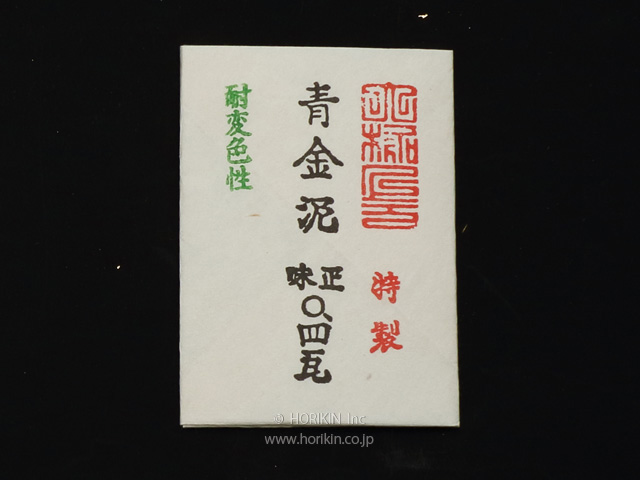 特製
青金泥
正味
〇、四瓦
耐変色性
© HORIKIN Inc
www.horikin.co.jp